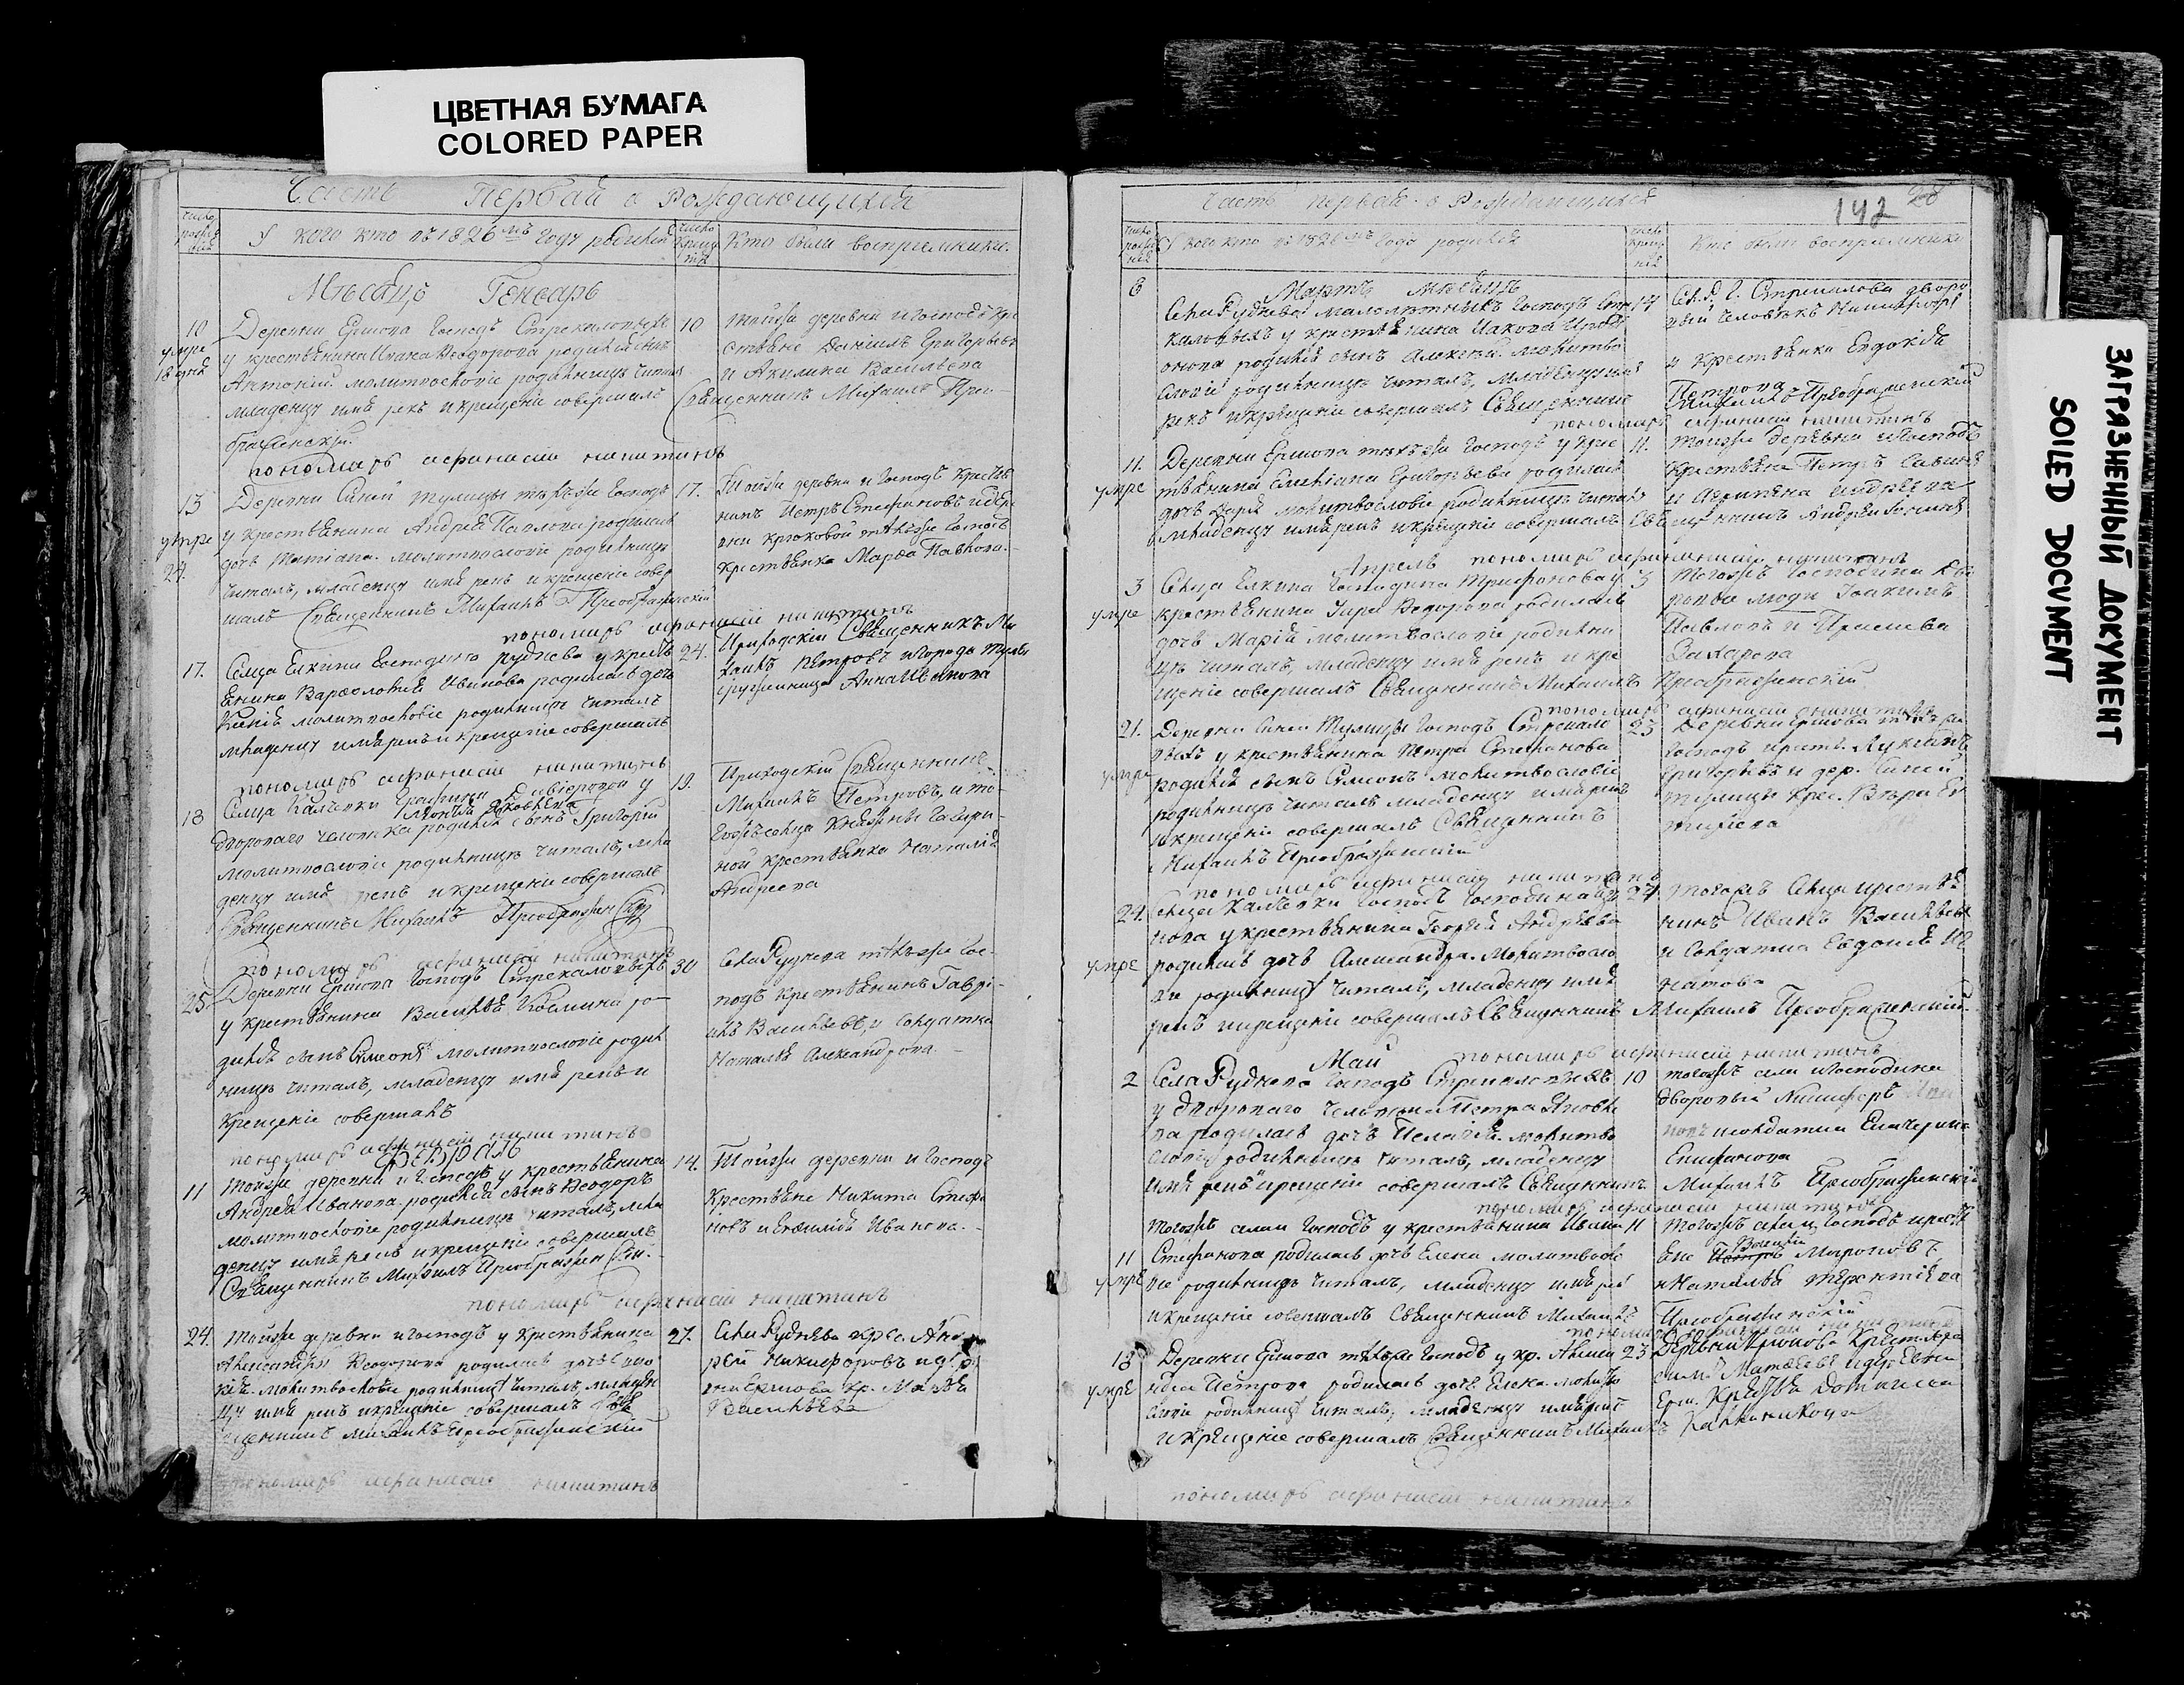 ЦВЕТНАЯ БУМАГА
COLORED PAPER
Часть Первая о Рождающихся
У кого кто въ 1826мъ годѣ родился
Кто были воспрiемники.
Мѣсяцъ Генварь
10
умре
18 дней
Деревни Ершова Господъ Стрекаловыхъ
у крестьянина Ивана Ѳеодорова родился сынъ
Антонiй. молитвословiе родильницѣ читалъ
младенцу имя рекъ и крещенiе совершалъ Священникъ Михаилъ Пре-
ображенскiй.
10
тойже деревни и Господъ кре
стьяне Данiилъ Григорьевъ
и Акулина Васильева
пономарь афанасiй никитинъ
13
умре
24.
Деревни Синей Тулицы тѣхъже Господъ
у крестьянина Андрея Павлова родилась
дочь Татiана. молитвословiе родильницѣ
читалъ, младенцу имя рекъ и крещенiе совер
шалъ Священникъ Михаилъ Преображенскiй
17.
Тойже деревни и Господъ крестья
нинъ Петръ Стефановъ и дере
вни крюковой тѣхъже Господъ
крестьянка Марѳа Павлова.
пономарь афанасiй никитинъ
17.
Сельца Елкина Господина Руднева у крест
янина Варѳоломея Иванова родилась дочь
Ксенiя молитвословiе родильницѣ читалъ
младенцу имя рекъ и крещенiе совершалъ
24.
Приходскiй Священникъ Ми
хаилъ Петровъ и города Тулы
оружейница Анна Иванова
пономарь афанасiй никитинъ
18
Сельца
у
двороваго человѣка родился сынъ Григорiй
молитвословiе родильницѣ читалъ, мла
денцу имя рекъ и крещенiе совершалъ
Священникъ Михаилъ Преображенскiй
19.
Приходскiй Священникъ
Михаилъ Петровъ, и то
гожъ сельца Княжны Гагари-
ной крестьянка Наталiя
Андреева
пономарь афанасiй никитинъ
25.
Деревни Ершова Господъ Стрекаловыхъ
у крестьянина Василья Козмина ро-
дился сынъ Сѵмеонъ молитвословiе родил
ницѣ читалъ, младенцу имя рекъ и
крещенiе совершалъ
30
Села Руднева тѣхъже Гос-
подъ Крестьянинъ Гаврi-
илъ Васильевъ, и Солдатка
Наталья Александрова.
пономарь афанасiй никитинъ
Февраль
11
Тойже деревни и Господъ у крестьянина
Андрея Иванова родился сынъ Ѳеодоръ
молитвословiе родильницѣ читалъ, мла
денцу имя рекъ и крещенiе совершалъ
Священникъ Михаилъ Преображенскiй.
14.
Тойже деревни и Господъ
Крестьяне Никита Стефа
новъ и Евѳимiя Иванова.
пономарь афанасiй никитинъ
24.
Тойже деревни и Господъ у крестьянина
Александра Ѳеодорова родилась дочь
молитвословiе родильницѣ читалъ, младен
цу имя рекъ и крещенiе совершалъ Свя
щенникъ Михаилъ Преображенскiй
27.
Села Руднева крес. Анд
рей Никифоровъ и дере
вни Ершова кр. Марѳа
Васильева
пономарь афанасiй никитинъ
Часть первая о Рождающихся
142
У кого кто въ 1826мъ годѣ родился
Кто были воспрiемники
Мартъ мѣсяцъ
6
Села Руднева малолѣтныхъ Господъ Стре
каловыхъ у крестьянина Иакова
родился сынъ Алексѣй. молитво
словiе родильницѣ читалъ, младенцу имя
рекъ и крещенiе совершалъ Священникъ Михаилъ Преображенскiй
14
Стрекалова дворо
вый человѣкъ
и крестьянка Евдокiя
Петрова
пономарь афанасiй никитинъ
11.
умре
Деревни Ершова тѣхъже Господъ у крес
тьянина Емельяна Григорьева родилась
дочь Дарья молитвословiе родильницѣ читалъ
младенцу имя рекъ и крещенiе совершалъ Священникъ Андрей
11.
тойже деревни и Господъ
Крестьяне Петръ Савинъ
и Агрипена Андреева
Апрель пономарь афанасiй никитинъ
3
умре
Сельца Елкина Господина Трифонова у
крестьянина Ѳедорова родилась
дочь Марiя молитвословiе родильни
цѣ читалъ, младенцу имя рекъ и кре
щенiе совершалъ Священникъ Михаилъ Преображенскiй
5
тогожъ Господина дво
ровые люди Iоакимъ
Павловъ и
Захарова
пономарь афанасiй никитинъ
21.
умре
Деревни Синей Тулицы Господъ Стрекало
выхъ у крестьянина Петра Стефанова
родился сынъ Сѵмеонъ молитвословiе
родильницѣ читалъ младенцу имя рекъ
и крещенiе совершалъ Священникъ
Михаилъ Преображенскiй
23
Деревни Ершова тѣхъже
Господъ крест. Лукiанъ
Григорьевъ и дер. Синей
тулицы Крес. Вѣра Ев
пономарь афанасiй никитинъ
24.
умре
у крестьянина Георгiя Андреева
родилась дочь Александра. Молитвосло
вiе родильницѣ читалъ, младенцу имя
рекъ и крещенiе совершалъ Священникъ Михаилъ Преображенскiй.
27.
тогожъ сельца крестья
нинъ Иванъ Васильевъ
и Солдатка Евдокiя
Май пономарь афанасiй никитинъ
2
Села Руднева Господъ Стрекаловыхъ
у двороваго человѣка Петра Яковле
ва родилась дочь Пелагiя. молитво
словiе родильницѣ читалъ, младенцу
имя рекъ и крещенiе совершалъ Священникъ Михаилъ Преображенскiй
10
тогожъ села и Господина
дворовый Никифоръ
и солдатка Екатерина
Епифанова
пономарь афанасiй никитинъ
11
умре
тогожъ села и Господъ у крестьянина Ивана
Стефанова родилась дочь Елена молитвосло
вiе родильницѣ читалъ, младенцу имя рекъ
и крещенiе совершалъ Священникъ Михаилъ Преображенскiй
11
тогожъ села и Господъ крест
яне Мироновъ
и Наталья Терентiева
18
умре
Деревни Ершова тѣхъже Господъ у кр.
Петрова родилась дочь Елена молитво
словiе родильницѣ читалъ, младенцу имя рекъ
и крещенiе совершалъ Священникъ Михаилъ
23
Деревни Крюковой Крест.
Матвѣевъ и дер.
пономарь афанасiй никитинъ
ЗАГРЯЗНЕННЫЙ ДОКУМЕНТ
SOILED DOCUMENT